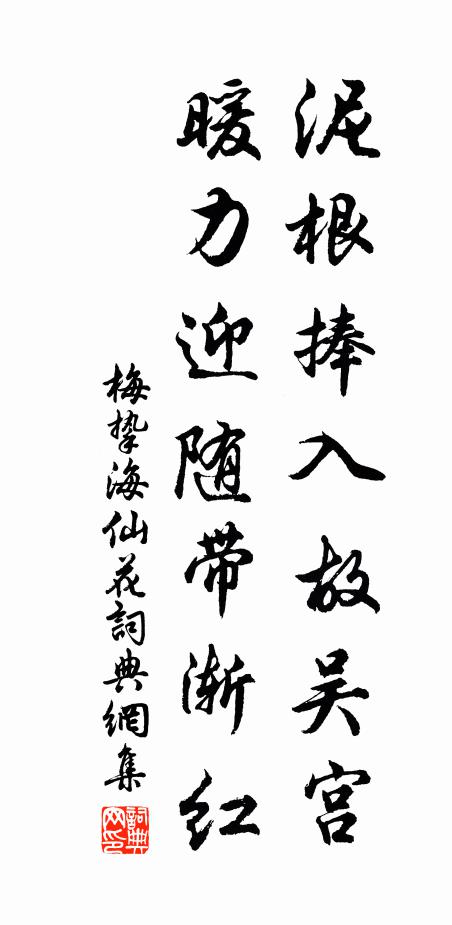 泥根捧入故吴宫
暖力迎随带渐红
梅挚海仙花詞典網集
詞典网印